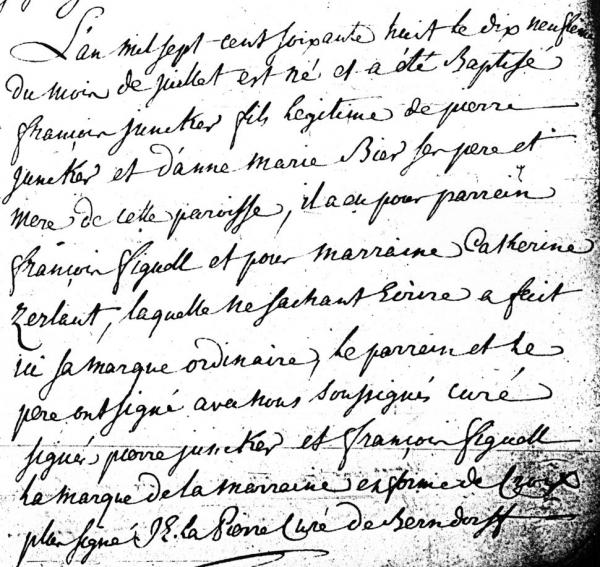 L'an mil sept-cent soixante huit le dix neufieme
du mois de juillet est né et a été Baptisé
françois juncker fils legitime de pierre
juncker et d'anne marie Bier ses pere et
mere de cette paroisse, il a eu pour parrein
françois figuell et pour marraine Catherine
Zerlaut, laquelle ne sachant Ecrire a fait
ici sa marque ordinaire, le parrein et le
pere ont signé avec nous soussignés curé
signés pierre juncker et françois figuell
La marque de la marraine en forme de Croix
plus signé J E. la Pierre Curé de Berndorff